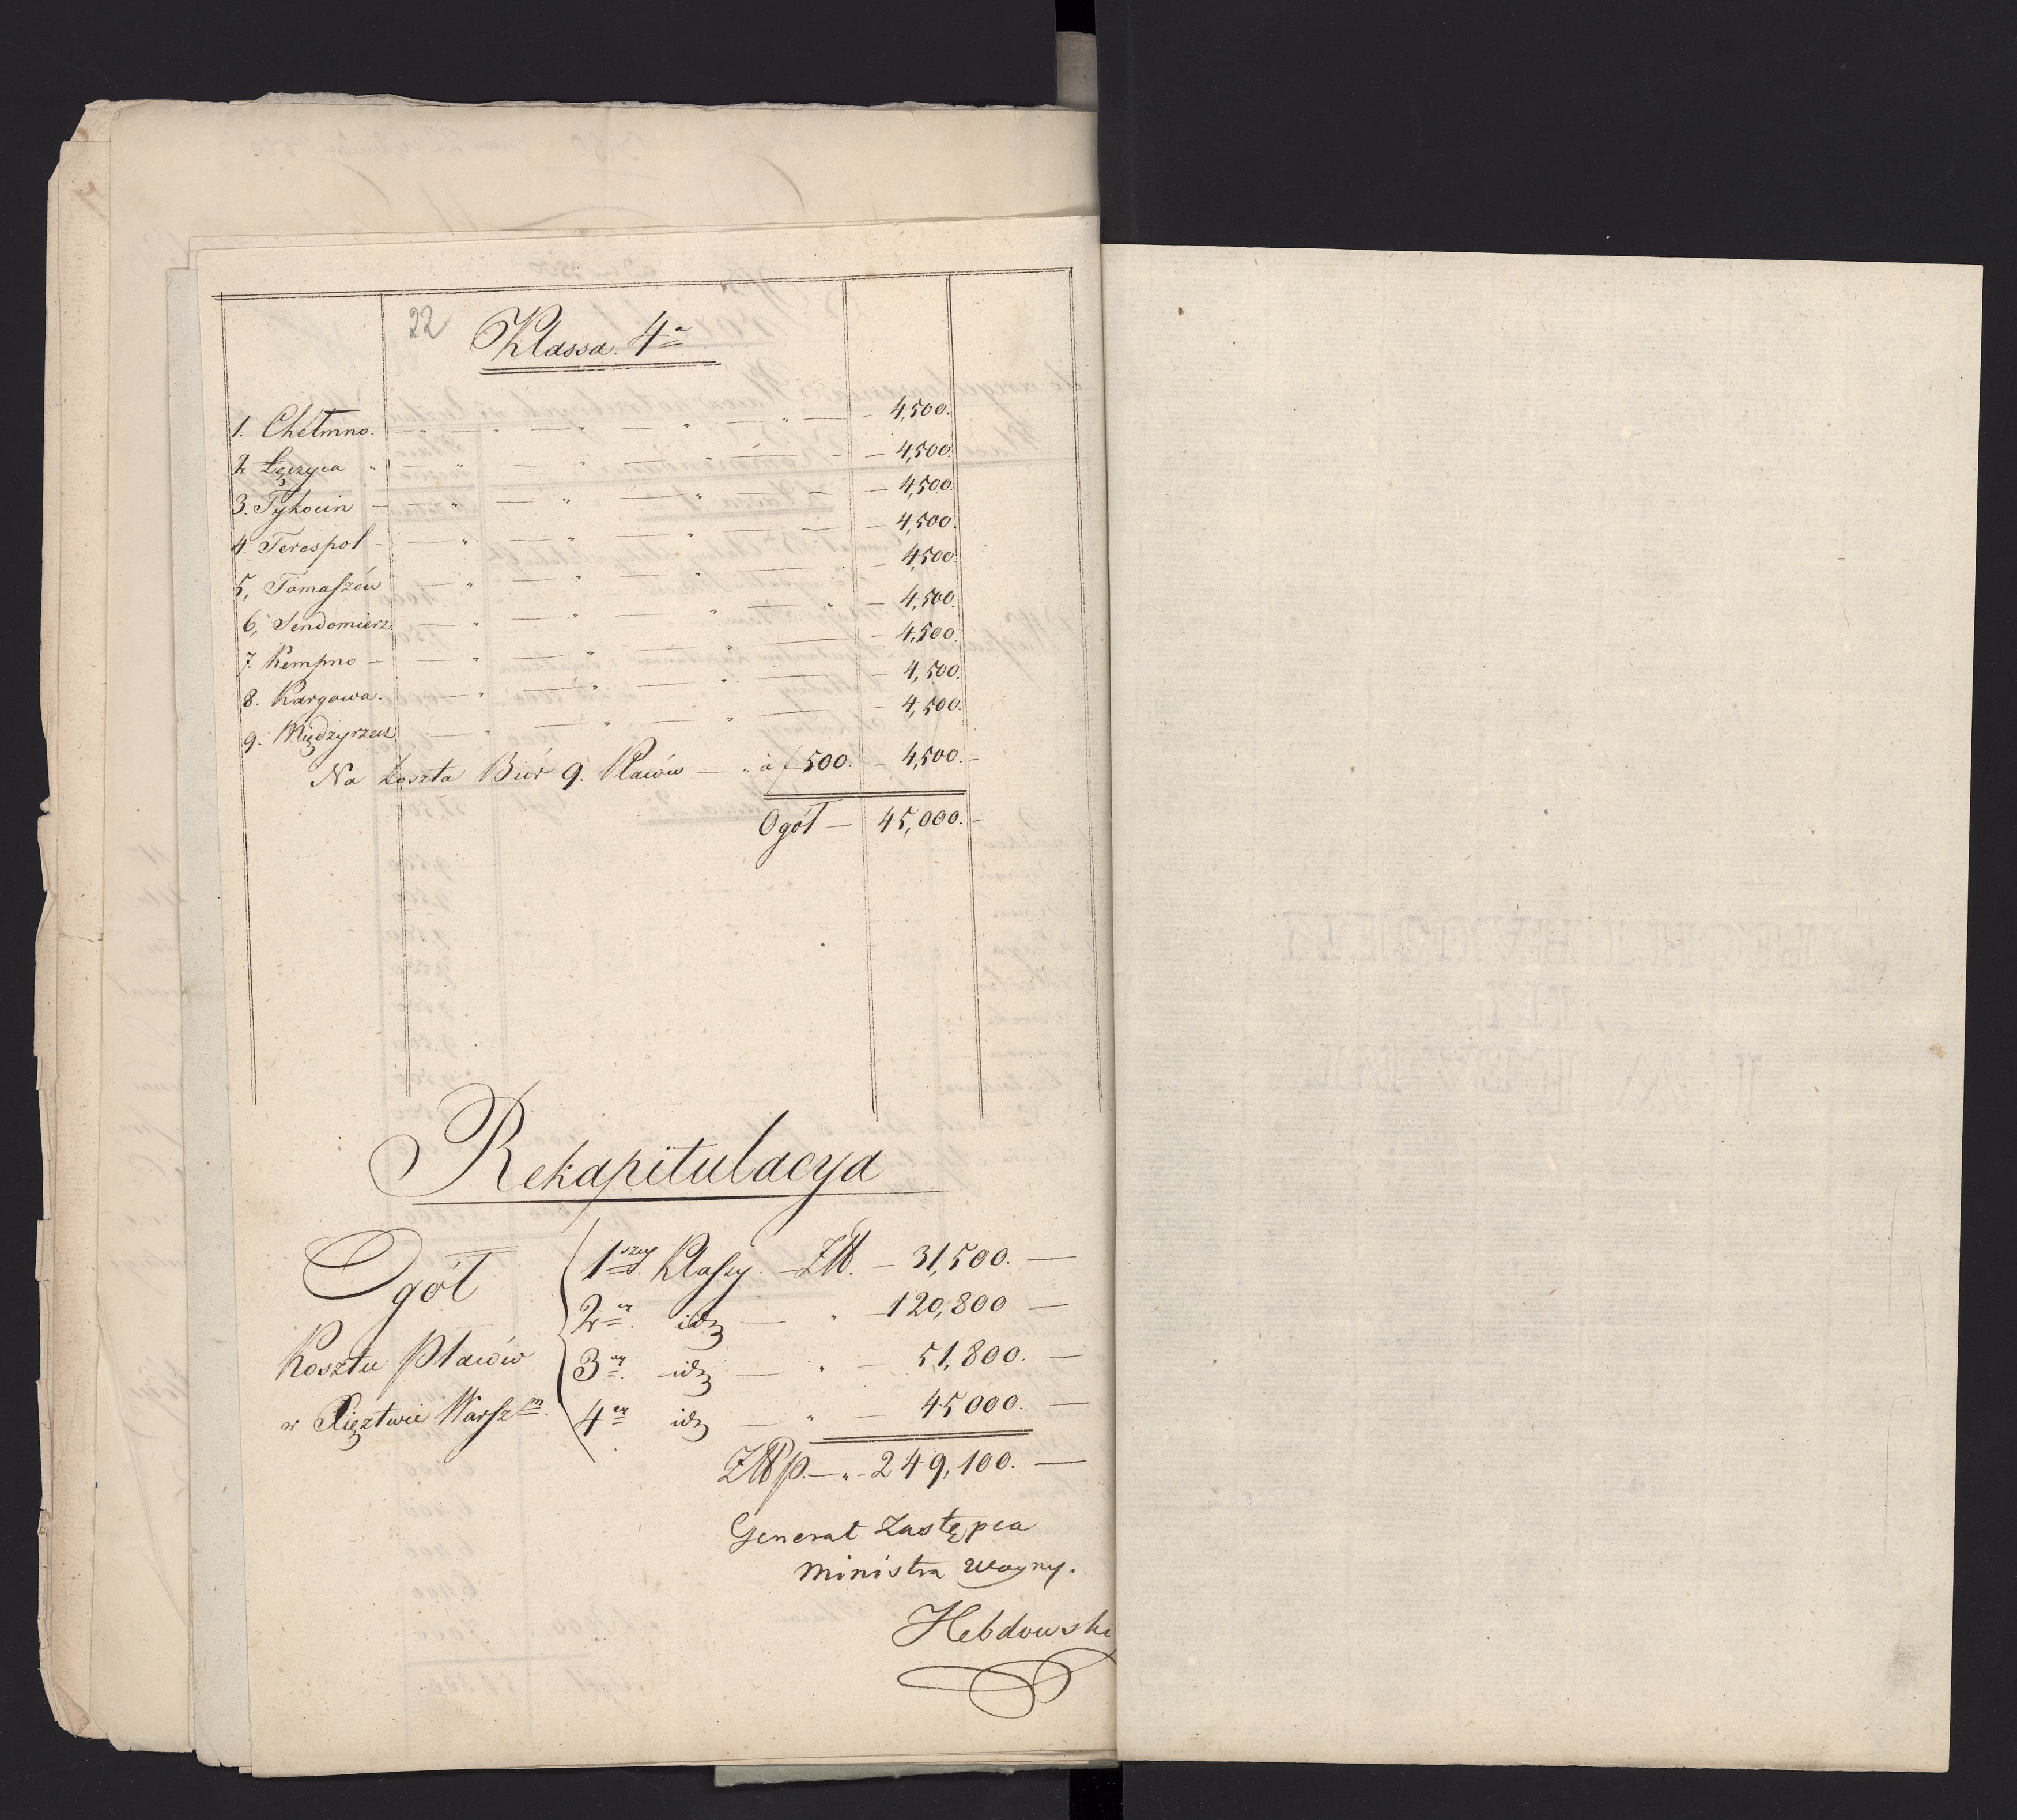 22
Klassa. 4ª
1. Chełmno. — " — " — " — " — 4,500.
2. Łęczyca " — " — " — " — 4,500.
3. Tykocin — " — " — " — 4,500.
4. Terespol — " — " — " — 4,500.
5, Tomaszów — " — " — " — 4,500.
6, Sendomierz. — " — " — " — " — 4,500.
7. Kempno — " — " — " — 4,500.
8. Kargowa. — " — " — " — 4,500.
9. Międzyrzecz. — " — " — " — 4,500.
Na koszta Biór 9. Placów — " à f 500. — 4,500. —
Ogół — 45,000. —
Rekapitulacya
Ogół
Kosztu Placów
w Xięztwie Warszm.
1szey. Klassy. — Złł. — 31,500. —
2er. idz — " — 120,800 —
3er. idz — " — 51,800. —
4er idz — " — 45000. —
Złłp. — " — 249,100. —
Generał Zastępca
Ministra Woyny.
Hebdowski